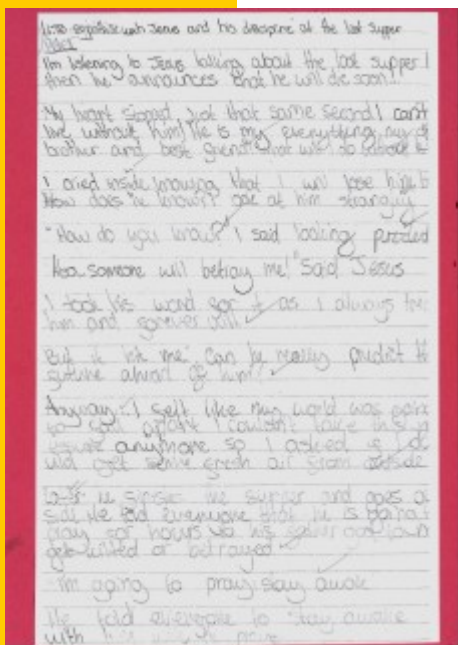 to empathise with Jesus and his disciples at the last supper
I'm listening to Jesus talking about the last supper
then he announces that he will die soon!
My heart stopped just that same second I can't
live without him! He is my everything my
brother and best friend that will to
I cried inside knowing that I will lose him
How does he know? at him strangely
"How do you know?" I said looking puzzled
someone will betray me!" Said Jesus
I took his word for it as I always
him and forever will
But it hit me: can he really predict
future ahead of him?
Anyway I felt like my world was going
to fall apart I couldn't take this
anymore so I asked if I
get some fresh air from outside
he finishes the supper and goes
side He told everyone that he is going
pray for hours to his father god
gets killed or betrayed
I'm going to pray stay awake
He told everyone to stay awake
with